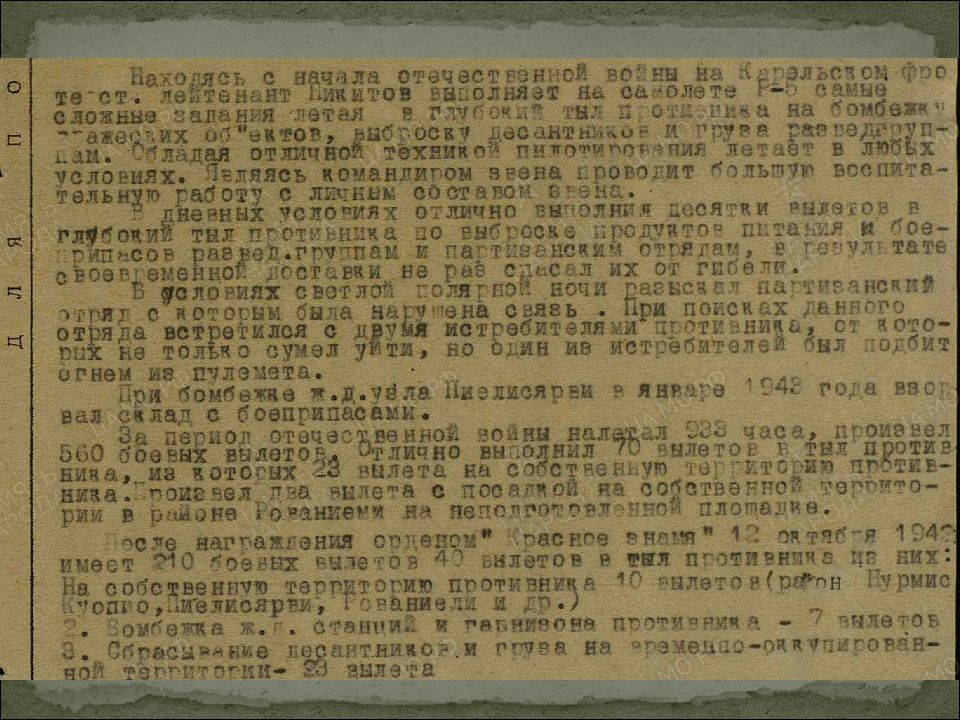 Находясь с начала отечественной войны на Карельском фро
те ст. лейтенант Никитов выполняет на самолете Р-5 самые
сложные задания летая в глубокий тыл противника на бомбежку
ажеских об"ектов, выброску десантников и груза разведгруп-
пам. Обладая отличной техникой пилотирования летает в любых
условиях. Являясь командиром звена проводит большую воспита-
тельную работу с личным составом звена.
В дневных условиях отлично выполнил десятки вылетов в
глубокий тыл противника по выброске продуктов питания и бое-
припасов развед.группам и партизанским отрядам, в результате
своевременной доставки не раз спасал их от гибели.
В условиях светлой полярной ночи разыскал партизанский
отряд с которым была нарушена связь . При поисках данного
отряда встретился с двумя истребителями противника, от кото-
рых не только сумел уйти, но один из истребителей был подбит
огнем из пулемета.
При бомбежке ж.д.узла Пиелисярви в январе 1943 года взор
вал склад с боеприпасами.
За период отечественной войны налетал 933 часа, произвел
560 боевых вылетов. Отлично выполнил 70 вылетов в тыл против
ника, из которых 23 вылета на собственную территорию против-
ника.Произвел два вылета с посадкой на собственной террито-
рии в районе Рованиеми на неподготовленной площадке.
После награждения орденом" Красное знамя" 12 октября 1942
имеет 210 боевых вылетов 40 вылетов в тыл противника из них:
На собственную территорию противника 10 вылетов(район Нурмис
Куопио,Пиелисярви, Рованиели и др.)
2. Бомбежка ж.д. станций и гарнизона противника - 7 вылетов
3. Сбрасывание десантников и груза на временно-оккупирован-
ной территории- 23 вылета
Д Л Я П О